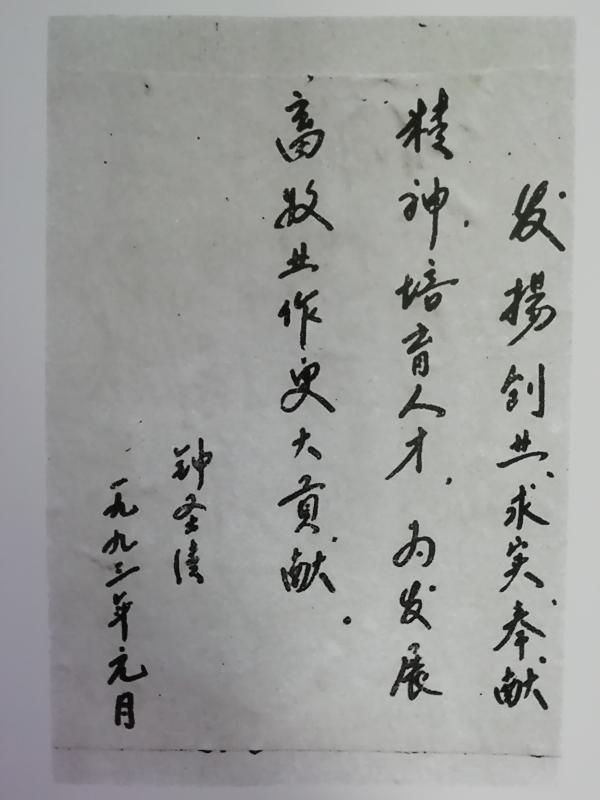 发揚创业、求实、奉献
精神,培育人才,为发展
畜牧业作更大贡献。
钟圣清
一九九三年元月